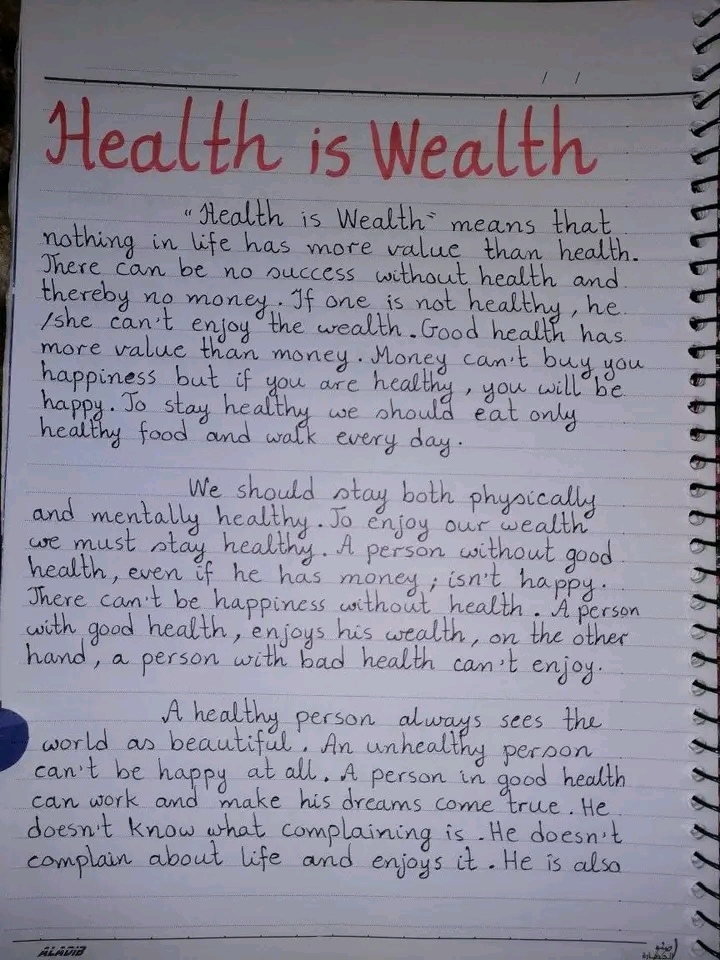 / /
Health is Wealth
"Health is Wealth" means that
nothing in life has more value than health.
There can be no success without health and
thereby no money. If one is not healthy, he
/she can't enjoy the wealth. Good health has
more value than money. Money can't buy you
happiness but if you are healthy, you will be
happy. To stay healthy we should eat only
healthy food and walk every day.
We should stay both physically
and mentally healthy. To enjoy our wealth
we must stay healthy. A person without good
health, even if he has money; isn't happy.
There can't be happiness without health. A person
with good health, enjoys his wealth, on the other
hand, a person with bad health can't enjoy.
A healthy person always sees the
world as beautiful. An unhealthy person
can't be happy at all. A person in good health
can work and make his dreams come true. He
doesn't know what complaining is. He doesn't
complain about life and enjoys it. He is also
ALADIB